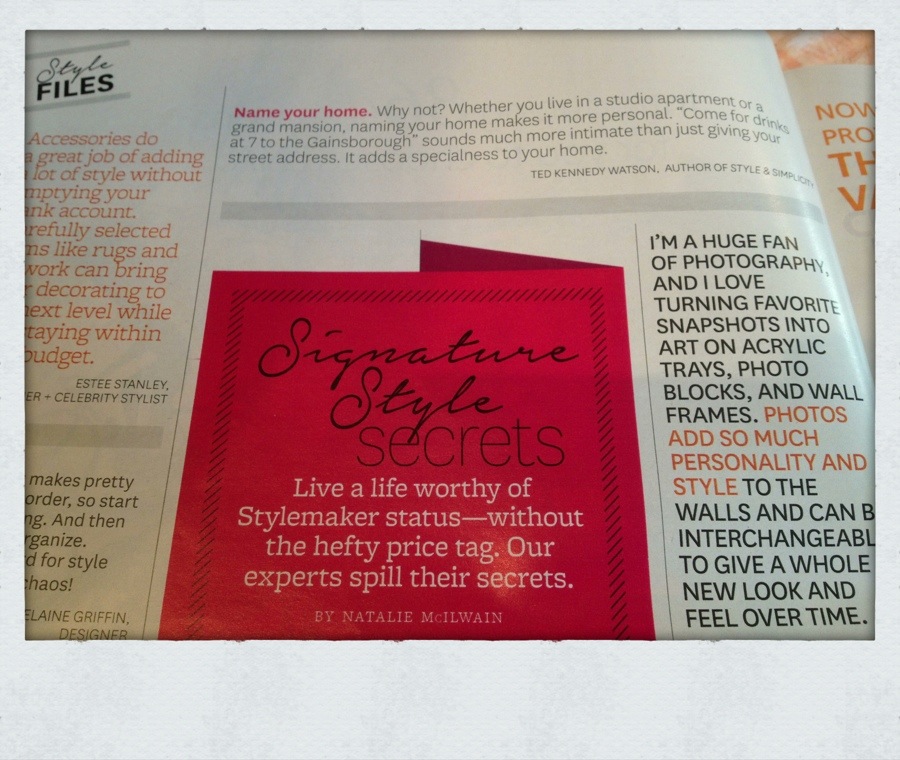 Style
FILES
Accessories do
a great job of adding
lot of style without
mptying your
ank account.
refully selected
ms like rugs and
work can bring
decorating to
ext level while
taying within
budget.
ESTEE STANLEY,
ER + CELEBRITY STYLIST
makes pretty
order, so start
ng. And then
rganize.
d for style
chaos!
ELAINE GRIFFIN,
DESIGNER
Name your home. Why not? Whether you live in a studio apartment or a
grand mansion, naming your home makes it more personal. “Come for drinks
at 7 to the Gainsborough” sounds much more intimate than just giving your
street address. It adds a specialness to your home.
TED KENNEDY WATSON, AUTHOR OF STYLE & SIMPLICITY
Signature
Style
secrets
Live a life worthy of
Stylemaker status—without
the hefty price tag. Our
experts spill their secrets.
BY NATALIE McILWAIN
I’M A HUGE FAN
OF PHOTOGRAPHY,
AND I LOVE
TURNING FAVORITE
SNAPSHOTS INTO
ART ON ACRYLIC
TRAYS, PHOTO
BLOCKS, AND WALL
FRAMES. PHOTOS
ADD SO MUCH
PERSONALITY AND
STYLE TO THE
WALLS AND CAN B
INTERCHANGEABL
TO GIVE A WHOLE
NEW LOOK AND
FEEL OVER TIME.
NOW
PRO
TH
VA